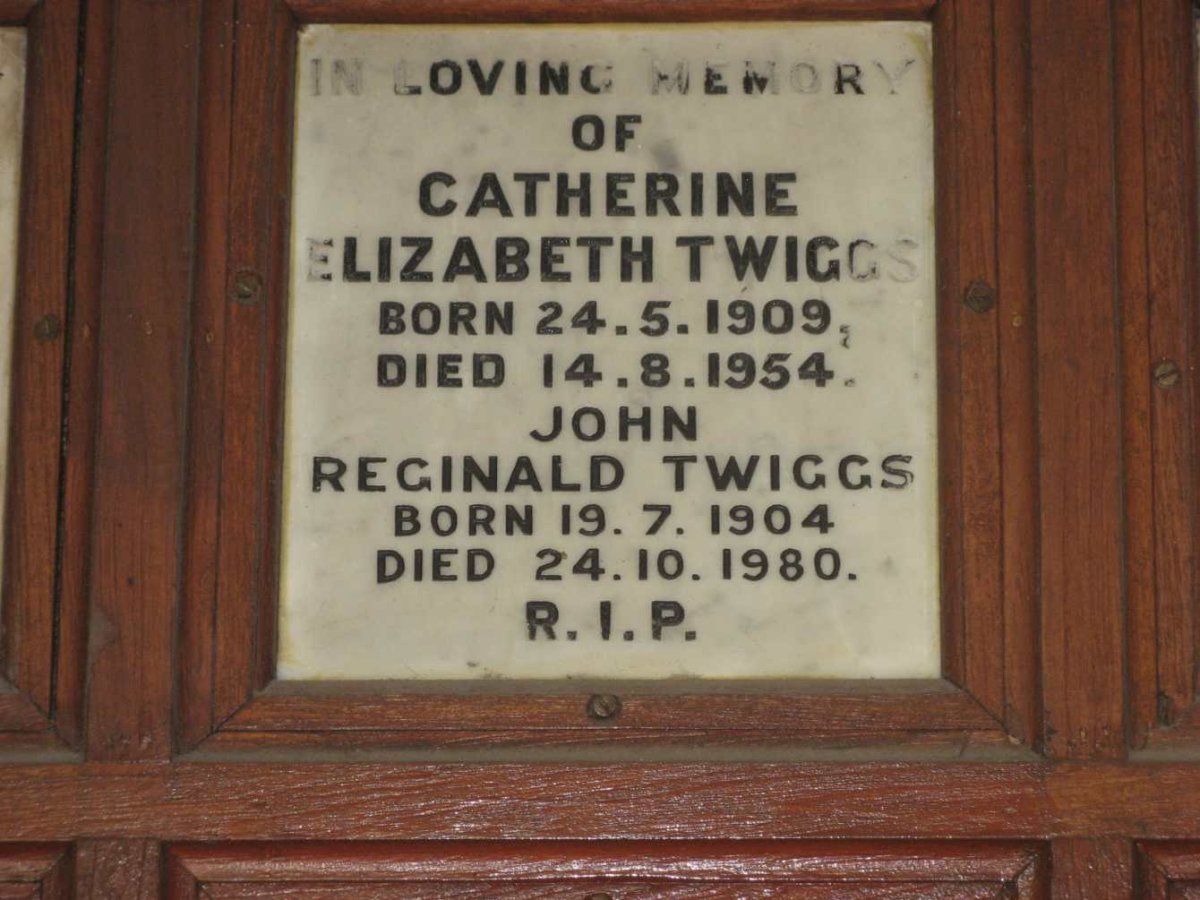 IN LOVING MEMORY
OF
CATHERINE
ELIZABETH TWIGGS
BORN 24.5.1909,
DIED 14.8.1954.
JOHN
REGINALD TWIGGS
BORN 19.7.1904
DIED 24.10.1980.
R.I.P.